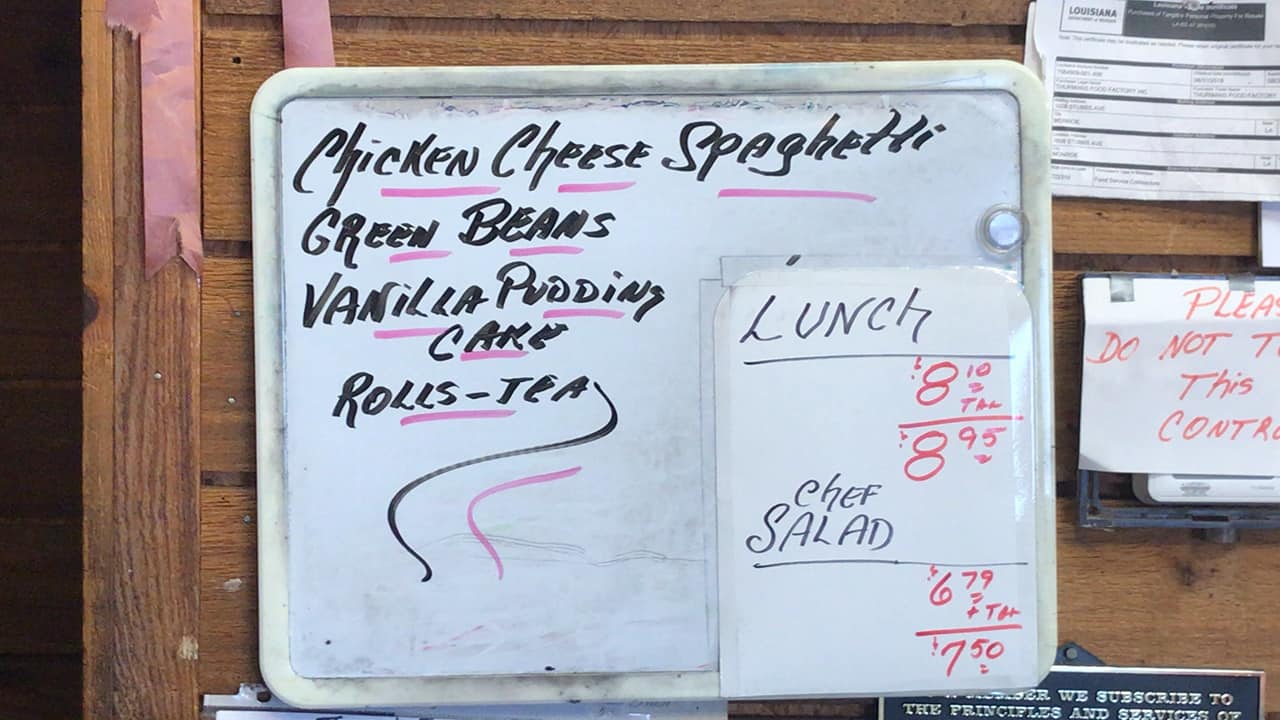 Chicken Cheese Spaghetti
Green Beans
Vanilla Pudding
Cake
Rolls-Tea
LUNCH
$8 10
Tax
$8 95
Chef
SALAD
$6 79
+ Tax
$7 50
LOUISIANA
THURMANS FOOD FACTORY INC
MONROE
Food Service Contractors
PLEA
DO NOT T
This
CONTRO
WE SUBSCRIBE TO
THE PRINCIPLES AND SERVICES OF